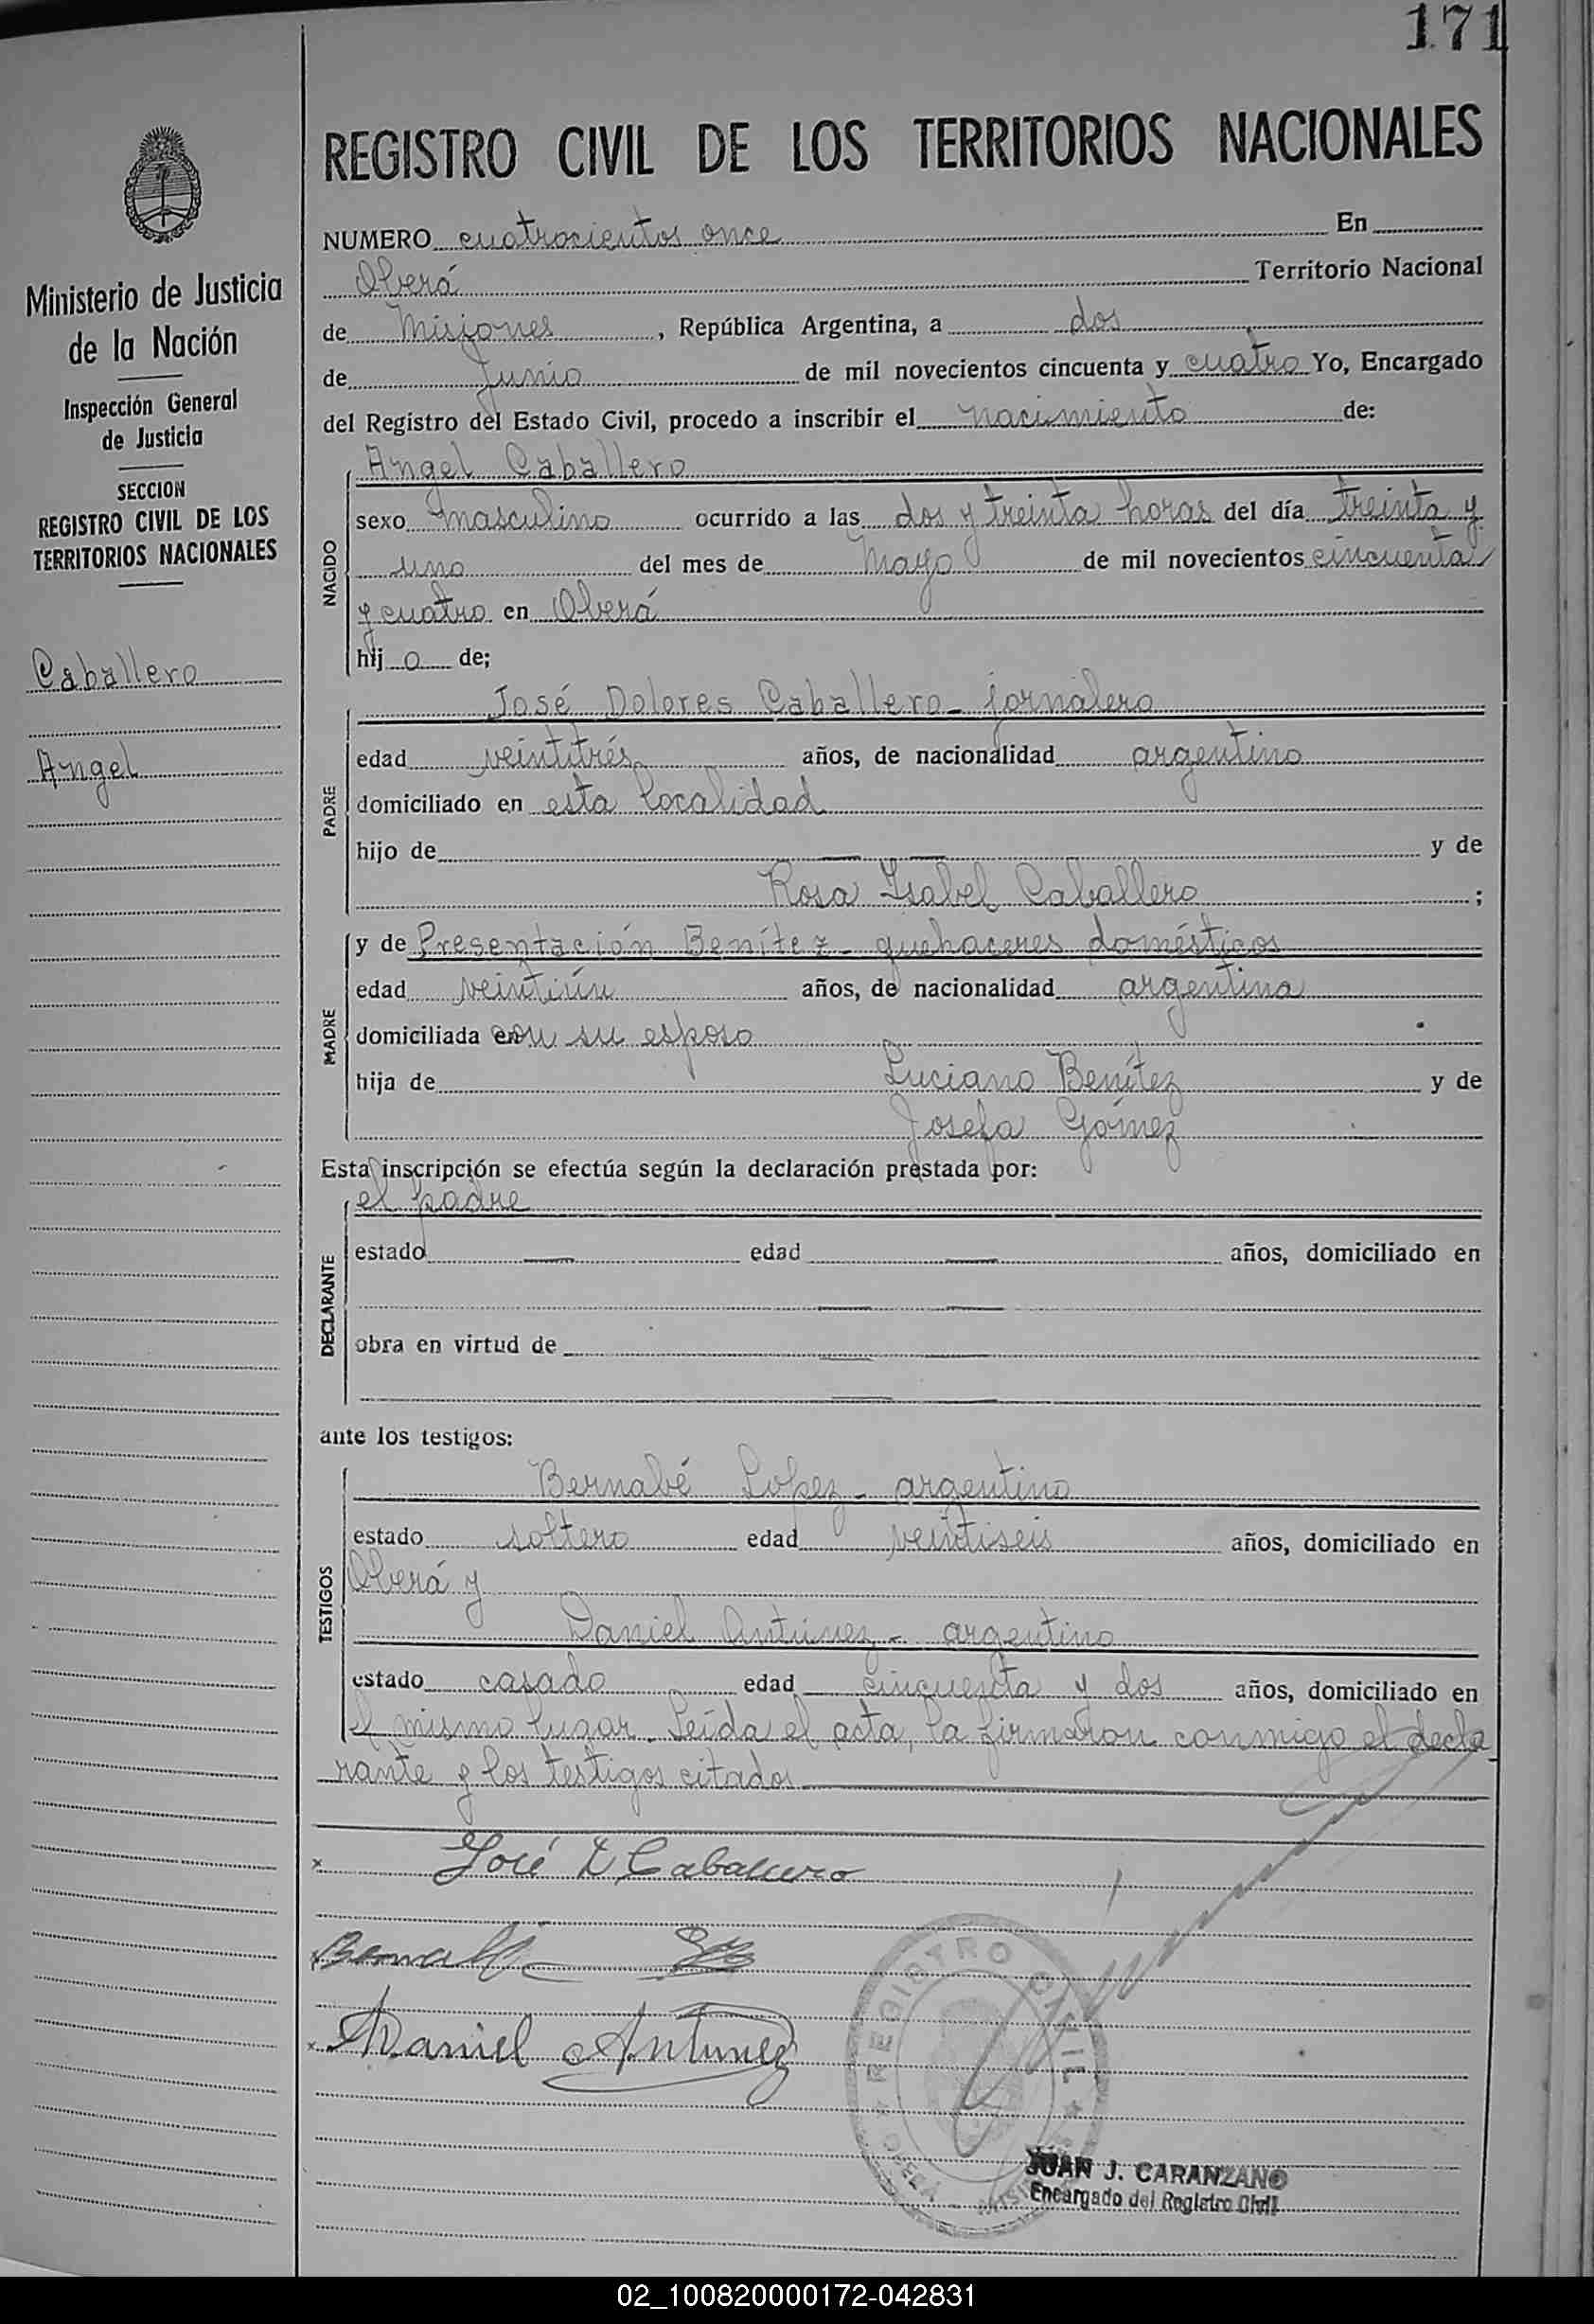 171
REGISTRO CIVIL DE LOS TERRITORIOS NACIONALES
Ministerio de Justicia
de la Nación
Inspección General
de Justicia
SECCION
REGISTRO CIVIL DE LOS
TERRITORIOS NACIONALES
Caballero
Angel
NUMERO cuatrocientos once En
Oberá Territorio Nacional
de Misiones, República Argentina, a dos
de Junio de mil novecientos cincuenta y cuatro Yo, Encargado
del Registro del Estado Civil, procedo a inscribir el nacimiento de:
NACIDO
Angel Caballero
sexo masculino ocurrido a las dos y treinta horas del día treinta y
uno del mes de Mayo de mil novecientos cincuenta
y cuatro en Oberá
hij o de;
PADRE
José Dolores Caballero - jornalero
edad veintitrés años, de nacionalidad argentino
domiciliado en esta localidad
hijo de — — y de
Rosa Isabel Caballero ;
MADRE
y de Presentación Benítez - quehaceres domésticos
edad veintiún años, de nacionalidad argentina
domiciliada con su esposo
hija de Luciano Benítez y de
Josefa Gómez
Esta inscripción se efectúa según la declaración prestada por:
DECLARANTE
el padre
estado — edad — años, domiciliado en
— —
obra en virtud de — —
— —
ante los testigos:
TESTIGOS
Bernabé Lopez - argentino
estado soltero edad veintiseis años, domiciliado en
Oberá y
Daniel Antúnez - argentino
estado casado edad cincuenta y dos años, domiciliado en
el mismo lugar. Leída el acta, la firmaron conmigo el decla
rante y los testigos citados
x José D Caballero
x Daniel Antunez
REGISTRO CIVIL
OBERA - MISIONES
JUAN J. CARANZANO
Encargado del Registro Civil
02_100820000172-042831